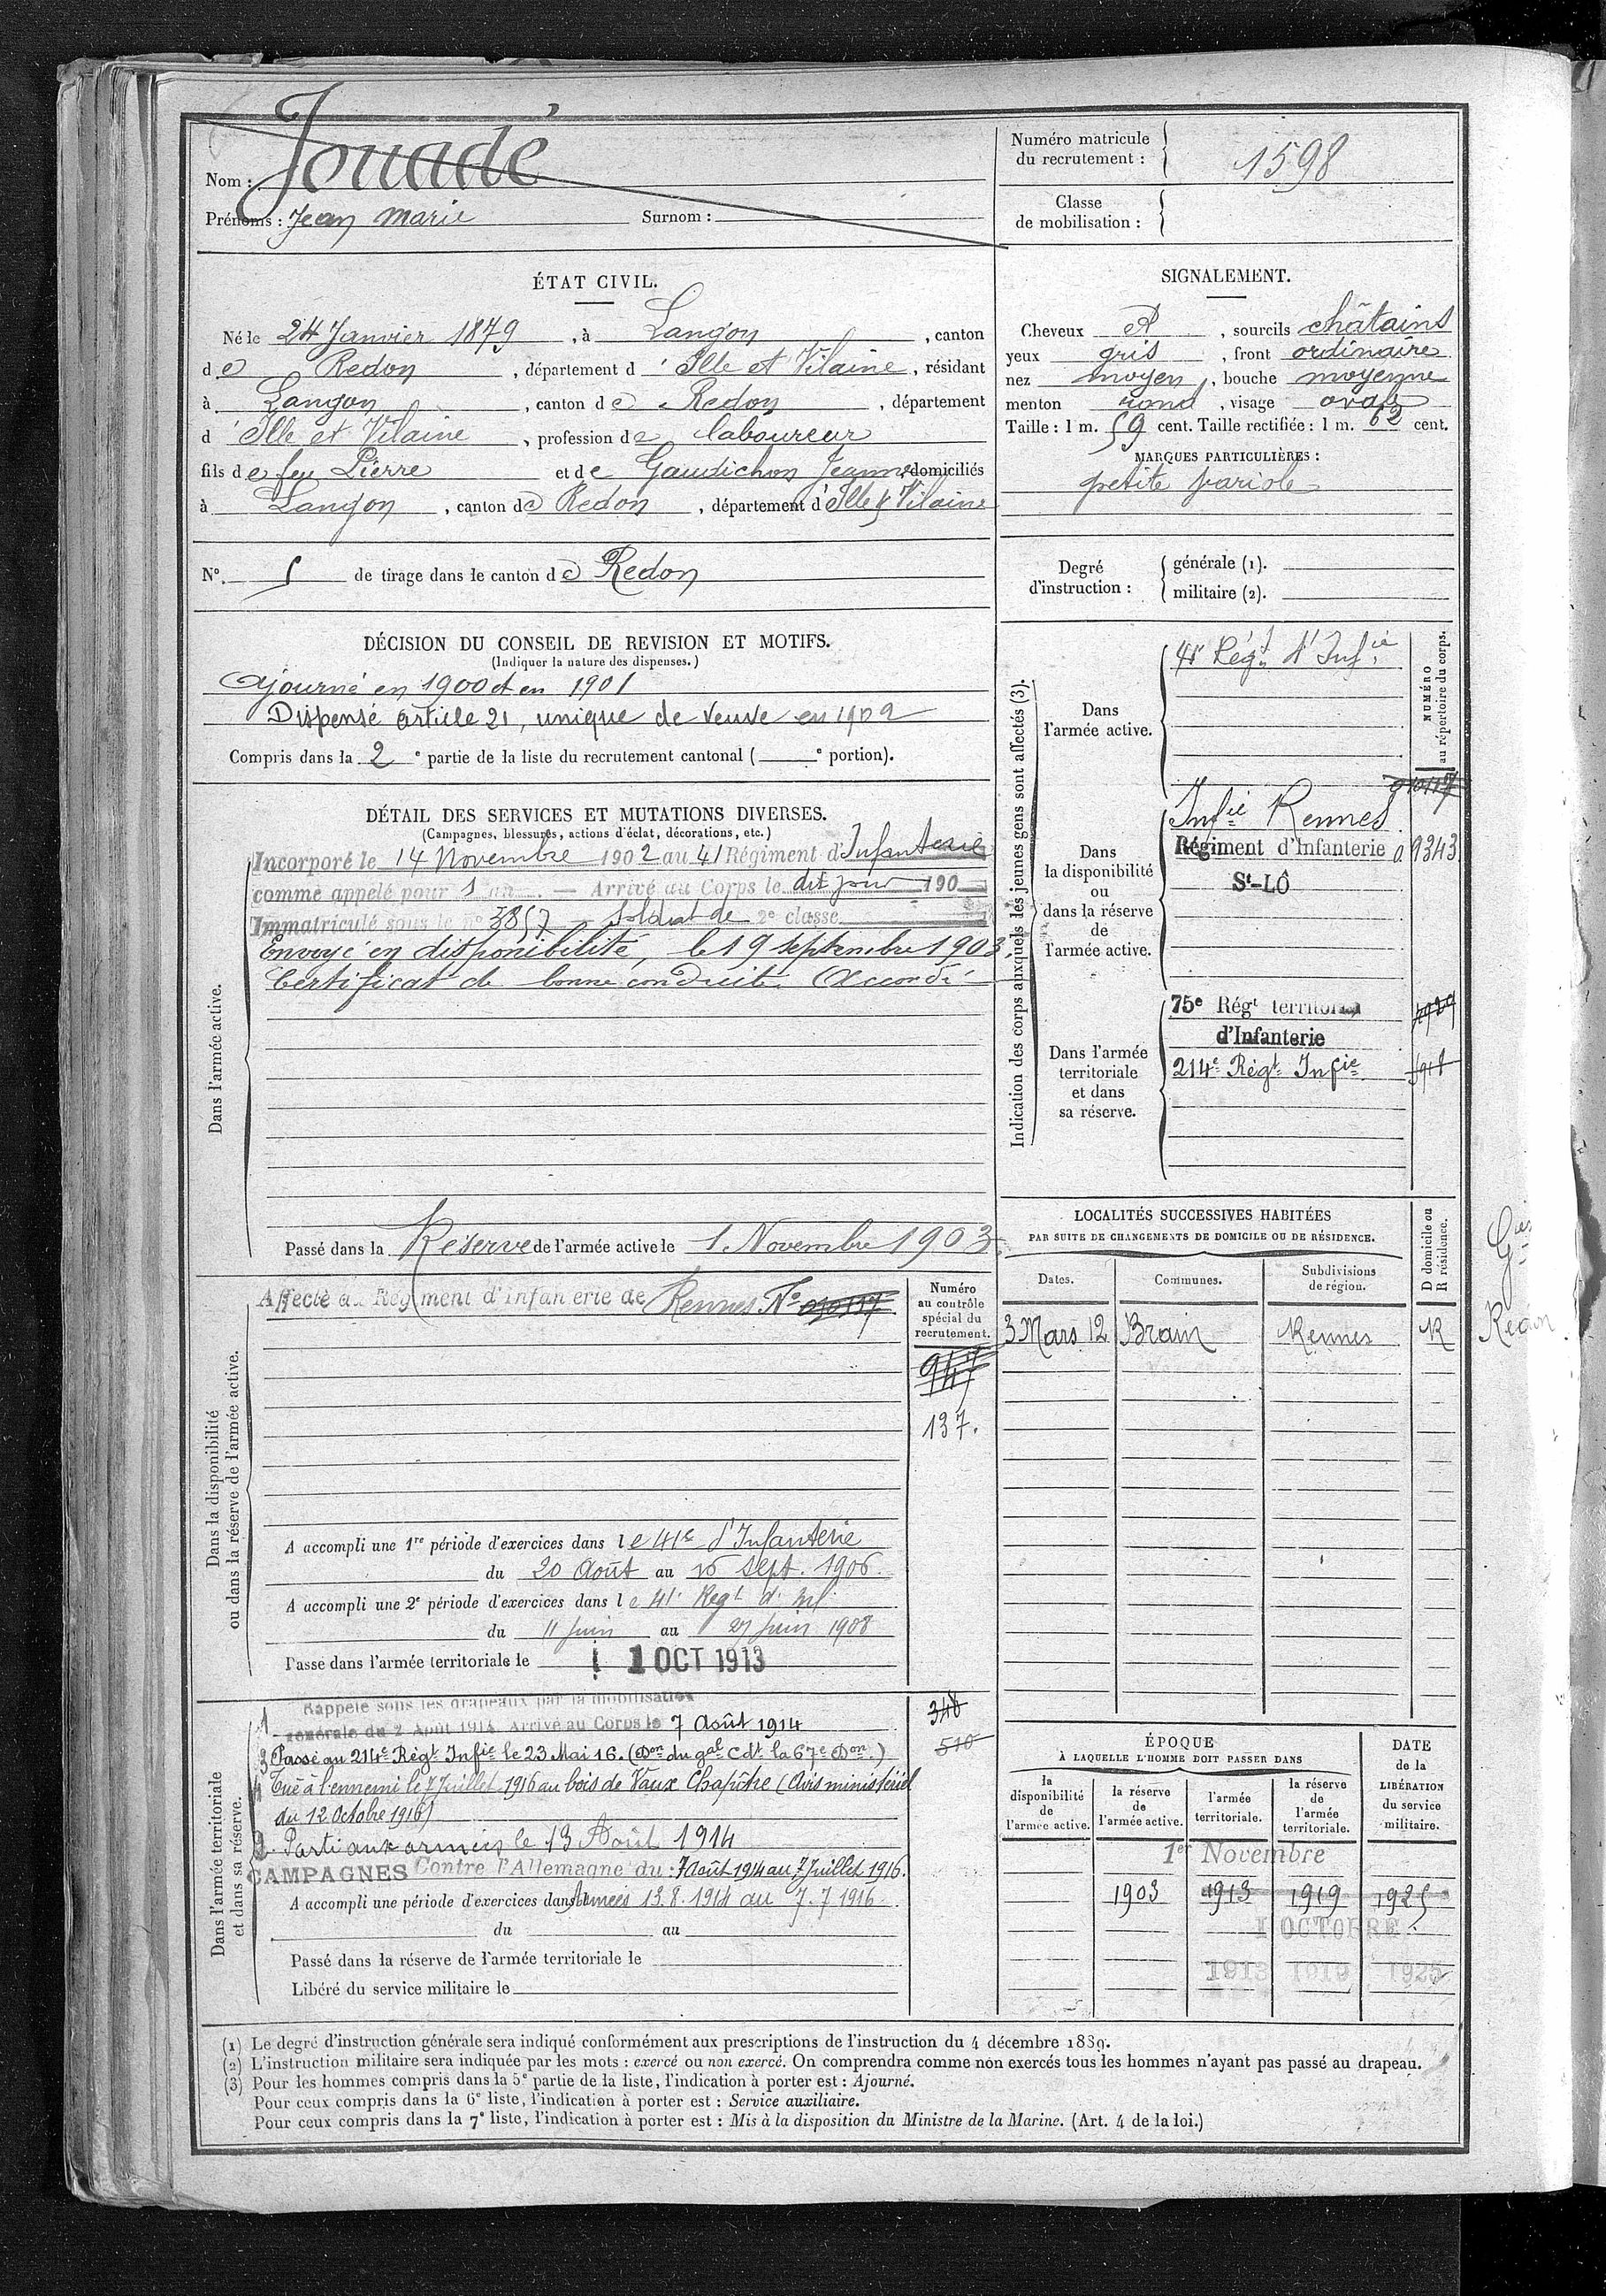 Nom : Jouadé
Prénoms : Jean Marie Surnom :
Numéro matricule du recrutement : 1598
Classe de mobilisation :
ÉTAT CIVIL.
Né le 24 Janvier 1879, à Langon, canton
de Redon, département d'Ille et Vilaine, résidant
à Langon, canton de Redon, département
d'Ille et Vilaine, profession de laboureur
fils de feu Pierre et de Gaudichon Jeanne domiciliés
à Langon, canton de Redon, département d'Ille & Vilaine
N° 5 de tirage dans le canton de Redon
SIGNALEMENT.
Cheveux et, sourcils châtains
yeux gris, front ordinaire
nez moyen, bouche moyenne
menton rond, visage ovale
Taille : 1 m. 59 cent. Taille rectifiée : 1 m. 62 cent.
MARQUES PARTICULIÈRES :
petite variole
Degré d'instruction :
générale (1).
militaire (2).
DÉCISION DU CONSEIL DE REVISION ET MOTIFS.
(Indiquer la nature des dispenses.)
Ajourné en 1900 et en 1901
Dispensé article 21, unique de veuve en 1902
Compris dans la 2e partie de la liste du recrutement cantonal (e portion).
DÉTAIL DES SERVICES ET MUTATIONS DIVERSES.
(Campagnes, blessures, actions d'éclat, décorations, etc.)
Dans l'armée active.
Incorporé le 14 Novembre 1902 au 41 Régiment d'Infanterie
comme appelé pour 1 an. — Arrivé au Corps le dit jour 190
Immatriculé sous le n° 3857 — Soldat de 2e classe
Envoyé en disponibilité, le 19 septembre 1903.
Certificat de bonne conduite. Accordé
Passé dans la Réserve de l'armée active le 1 Novembre 1903
Dans la disponibilité
ou dans la réserve de l'armée active.
Affecté au Régiment d'Infanterie de Rennes N°
Numéro
au contrôle
spécial du
recrutement.
947
137.
A accompli une 1re période d'exercices dans le 41e d'Infanterie
du 20 Août au 16 Sept. 1906.
A accompli une 2e période d'exercices dans le 41e Regt d'Inf
du 11 Juin au 27 Juin 1908
Passé dans l'armée territoriale le 1 OCT 1913
Dans l'armée territoriale
et dans sa réserve.
1 Rappelé sous les drapeaux par la mobilisation
générale du 2 Août 1914. Arrivé au Corps le 7 Août 1914
3 Passé au 214e Régt Infie le 23 Mai 16. (Don du gal Cdt la 67e Don.)
4 Tué à l'ennemi le 7 Juillet 1916 au bois de Vaux Chapître (Avis ministériel
du 12 Octobre 1916)
2. Parti aux armées le 13 Août 1914
CAMPAGNES Contre l'Allemagne du : 7 Août 1914 au 7 Juillet 1916.
A accompli une période d'exercices dans Armées 13.8.1914 au 7.7.1916.
du au
Passé dans la réserve de l'armée territoriale le
Libéré du service militaire le
348
510
Indication des corps auxquels les jeunes gens sont affectés (3).
NUMÉRO
au répertoire du corps.
Dans
l'armée active.
41e Régt d'Infie
Dans
la disponibilité
ou
dans la réserve
de
l'armée active.
Infie Rennes
Régiment d'Infanterie 09343
St-LÔ
Dans l'armée
territoriale
et dans
sa réserve.
75e Régt territorial
d'Infanterie
214e Régt Infie
LOCALITÉS SUCCESSIVES HABITÉES
PAR SUITE DE CHANGEMENTS DE DOMICILE OU DE RÉSIDENCE.
D domicile ou
R résidence.
Dates. Communes. Subdivisions de région.
3 Mars 12 Brain Rennes R
Gies
Redon
ÉPOQUE
À LAQUELLE L'HOMME DOIT PASSER DANS
la disponibilité de l'armée active.
la réserve de l'armée active.
l'armée territoriale.
la réserve de l'armée territoriale.
DATE
de la
LIBÉRATION
du service
militaire.
1er Novembre
1903 1913 1919 1925
1 OCTOBRE
1913 1919 1925
(1) Le degré d'instruction générale sera indiqué conformément aux prescriptions de l'instruction du 4 décembre 1889.
(2) L'instruction militaire sera indiquée par les mots : exercé ou non exercé. On comprendra comme non exercés tous les hommes n'ayant pas passé au drapeau.
(3) Pour les hommes compris dans la 5e partie de la liste, l'indication à porter est : Ajourné.
Pour ceux compris dans la 6e liste, l'indication à porter est : Service auxiliaire.
Pour ceux compris dans la 7e liste, l'indication à porter est : Mis à la disposition du Ministre de la Marine. (Art. 4 de la loi.)